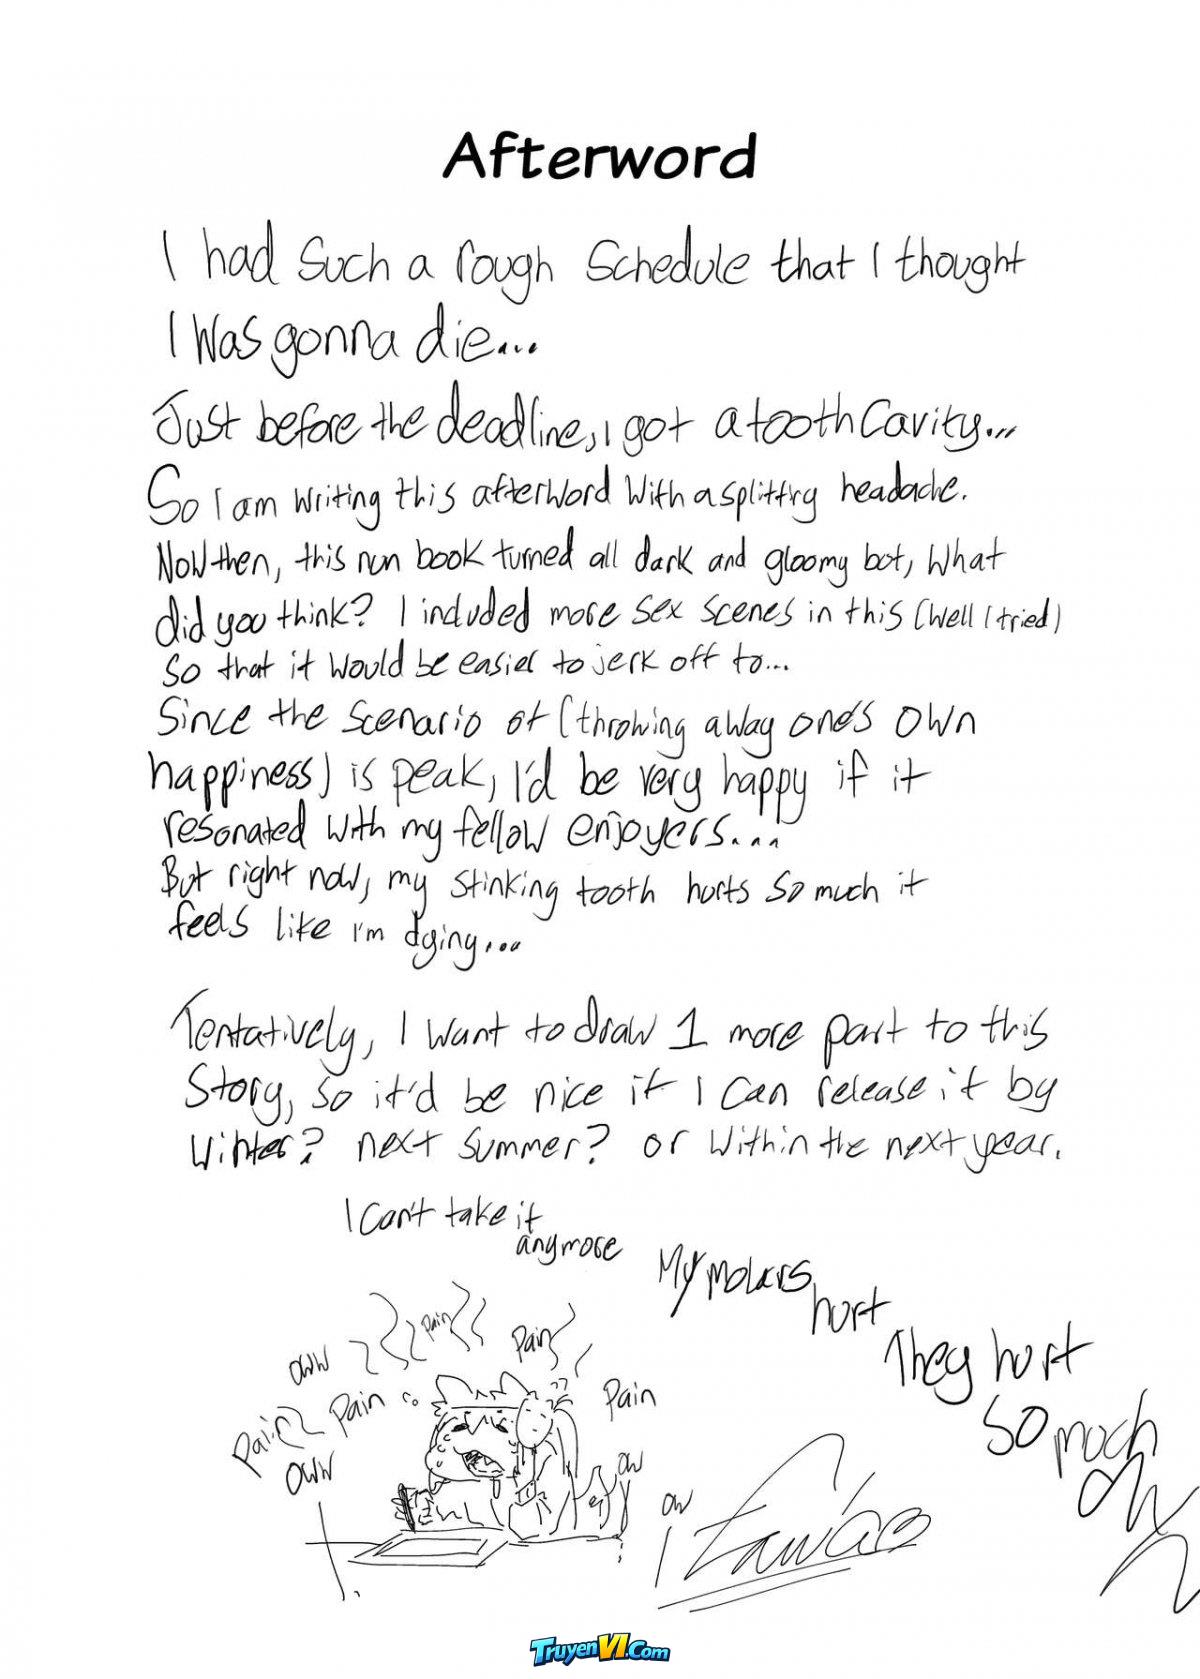 Afterword
I had such a rough schedule that I thought
I was gonna die...
Just before the deadline, I got a tooth cavity...
So I am writing this afterword with a splitting headache.
Now then, this nun book turned all dark and gloomy but, what
did you think? I included more sex scenes in this (well I tried)
so that it would be easier to jerk off to...
Since the scenario of (throwing away one's own
happiness) is peak, I'd be very happy if it
resonated with my fellow enjoyers...
But right now, my stinking tooth hurts so much it
feels like I'm dying...
Tentatively, I want to draw 1 more part to this
story, so it'd be nice if I can release it by
winter? next summer? or within the next year.
I can't take it
anymore
My molars
hurt
They hurt
so much
ow
pain
pain
oww
pain
pain
pain
oww
ow
ow
TruyenVI.Com